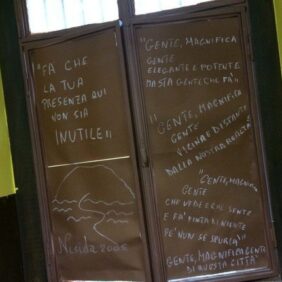 "FA CHE
LA TUA
PRESENZA QUI
NON SIA
INUTILE"
"GENTE, MAGNIFICA
GENTE
ELEGANTE E POTENTE
MA STA GENTE CHE FA"
"GENTE, MAGNIFICA
GENTE
VICINA E DISTANTE
DALLA NOSTRA REALTÀ"
"GENTE, MAGNIFICA
GENTE
CHE VEDE E CHE SENTE
E FA FINTA DI NIENTE
PE' NON SE SPURCÀ"
GENTE, MAGNIFICA GENTE
DI QUESTA CITTÀ"